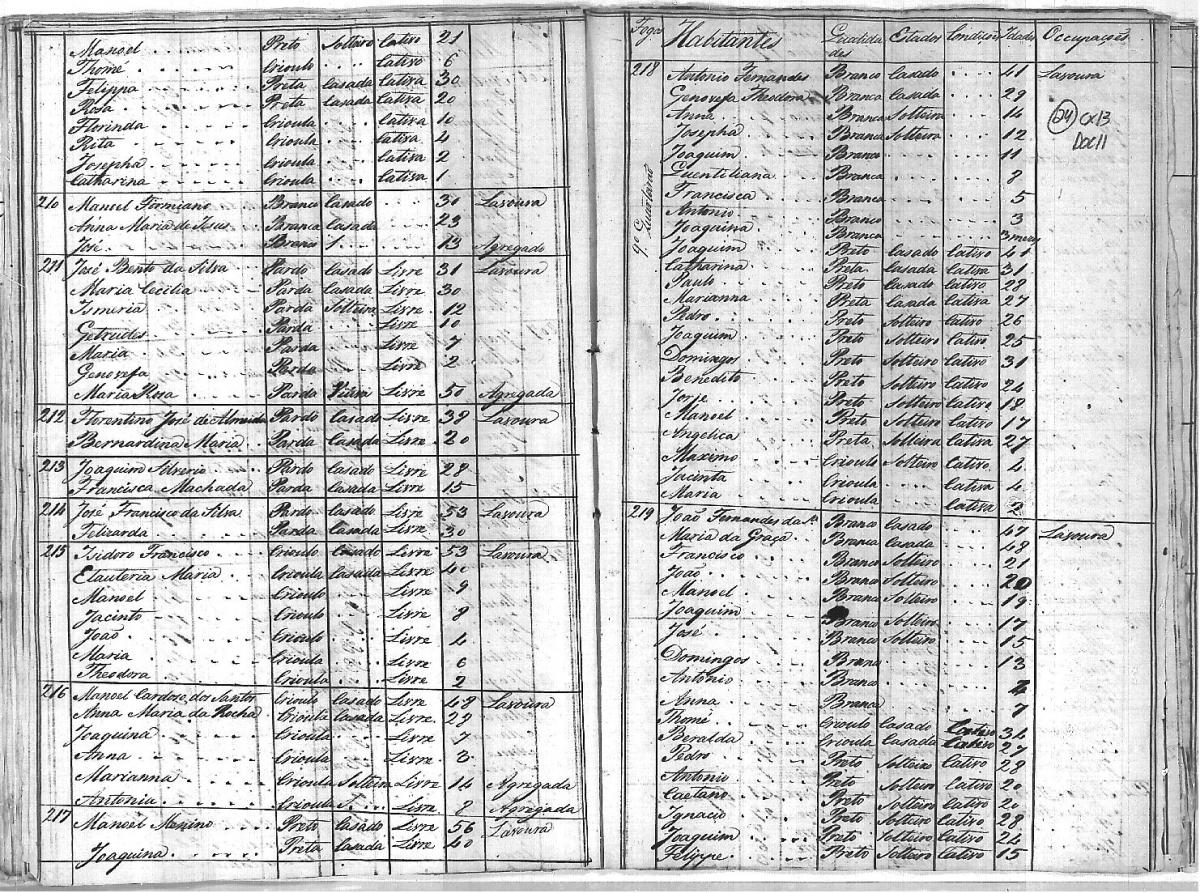 Manoel Preto Solteiro Cativo 21
Thomé Crioulo Cativo 6
Felippa Preta Casada Cativa 30
Rosa Preta Casada Cativa 20
Florinda Crioula Cativa 10
Rita Crioula Cativa 4
Josepha Crioula Cativa 2
Catharina Crioula Cativa 1
210 Manoel Firmiano Branco Casado 30 Lavoura
Anna Maria de Jesus Branca Casada 23
José Branco 13 Agregado
211 José Bento da Silva Pardo Casado Livre 31 Lavoura
Maria Cecilia Parda Casada Livre 30
Ismeria Parda Solteira Livre 12
Getrudes Parda Livre 10
Maria Parda Livre 7
Genovefa Parda Livre 2
Maria Rosa Parda Viuva Livre 50 Agregada
212 Florentino José de Almeida Pardo Casado Livre 38 Lavoura
Bernardina Maria Parda Casada Livre 20
213 Joaquim Pardo Casado Livre 28
Francisca Machada Parda Casada Livre 15
214 José Francisco da Silva Pardo Casado Livre 53 Lavoura
Felizarda Parda Casada Livre 30
215 Isidoro Francisco Crioulo Casado Livre 53 Lavoura
Elauteria Maria Crioula Casada Livre 40
Manoel Crioulo Livre 9
Jacinto Crioulo Livre 8
João Crioulo Livre 4
Maria Crioula Livre 6
Theodora Crioula Livre 2
216 Manoel Cardozo dos Santos Crioulo Casado Livre 48 Lavoura
Anna Maria da Rocha Crioula Casada Livre 29
Joaquina Crioula Livre 7
Anna Crioula Livre 3
Marianna Crioula Solteira Livre 14 Agregada
Antonia Crioula Livre 8 Agregada
217 Manoel Menino Preto Casado Livre 56 Lavoura
Joaquina Preta Casada Livre 40
Fogos Habitantes Qualidades Estados Condições Idades Occupações
218 Antonio Fernandes Branco Casado 41 Lavoura
Genovefa Theodora Branca Casada 29
Anna Branca Solteira 14
Josepha Branca Solteira 12
Joaquim Branco 11
Quentiliana Branca 8
Francisca Branca 5
Antonio Branco 3
Joaquina Branca 3 mezes
Joaquim Preto Casado Cativo 41
Catharina Preta Casada Cativa 31
Paulo Preto Casado Cativo 28
Marianna Preta Casada Cativa 27
Pedro Preto Solteiro Cativo 26
Joaquim Preto Solteiro Cativo 25
Domingos Preto Solteiro Cativo 31
Benedito Preto Solteiro Cativo 24
Jorje Preto Solteiro Cativo 18
Manoel Preto Solteiro Cativo 17
Angelica Preta Solteira Cativa 27
Maximo Crioulo Solteiro Cativo 4
Jacinta Crioula Cativa 4
Maria Crioula Cativa 2
219 João Fernandes da Sa. Branco Casado 47 Lavoura
Maria da Graça Branca Casada 48
Francisco Branco Solteiro 21
João Branco Solteiro 20
Manoel Branco Solteiro 19
Joaquim Branco Solteiro 17
José Branco Solteiro 15
Domingos Branco 13
Antonio Branco
Anna Branca 7
Thomé Crioulo Casado Cativo
Beralda Crioula Casada Cativa 27
Pedro Preto Solteiro Cativo 28
Antonio Preto Solteiro Cativo 20
Caetano Preto Solteiro Cativo 20
Ignacio Preto Solteiro Cativo 28
Joaquim Preto Solteiro Cativo 24
Felippe Preto Solteiro Cativo 15
9º Quarteirão
24 CX13
DOC11